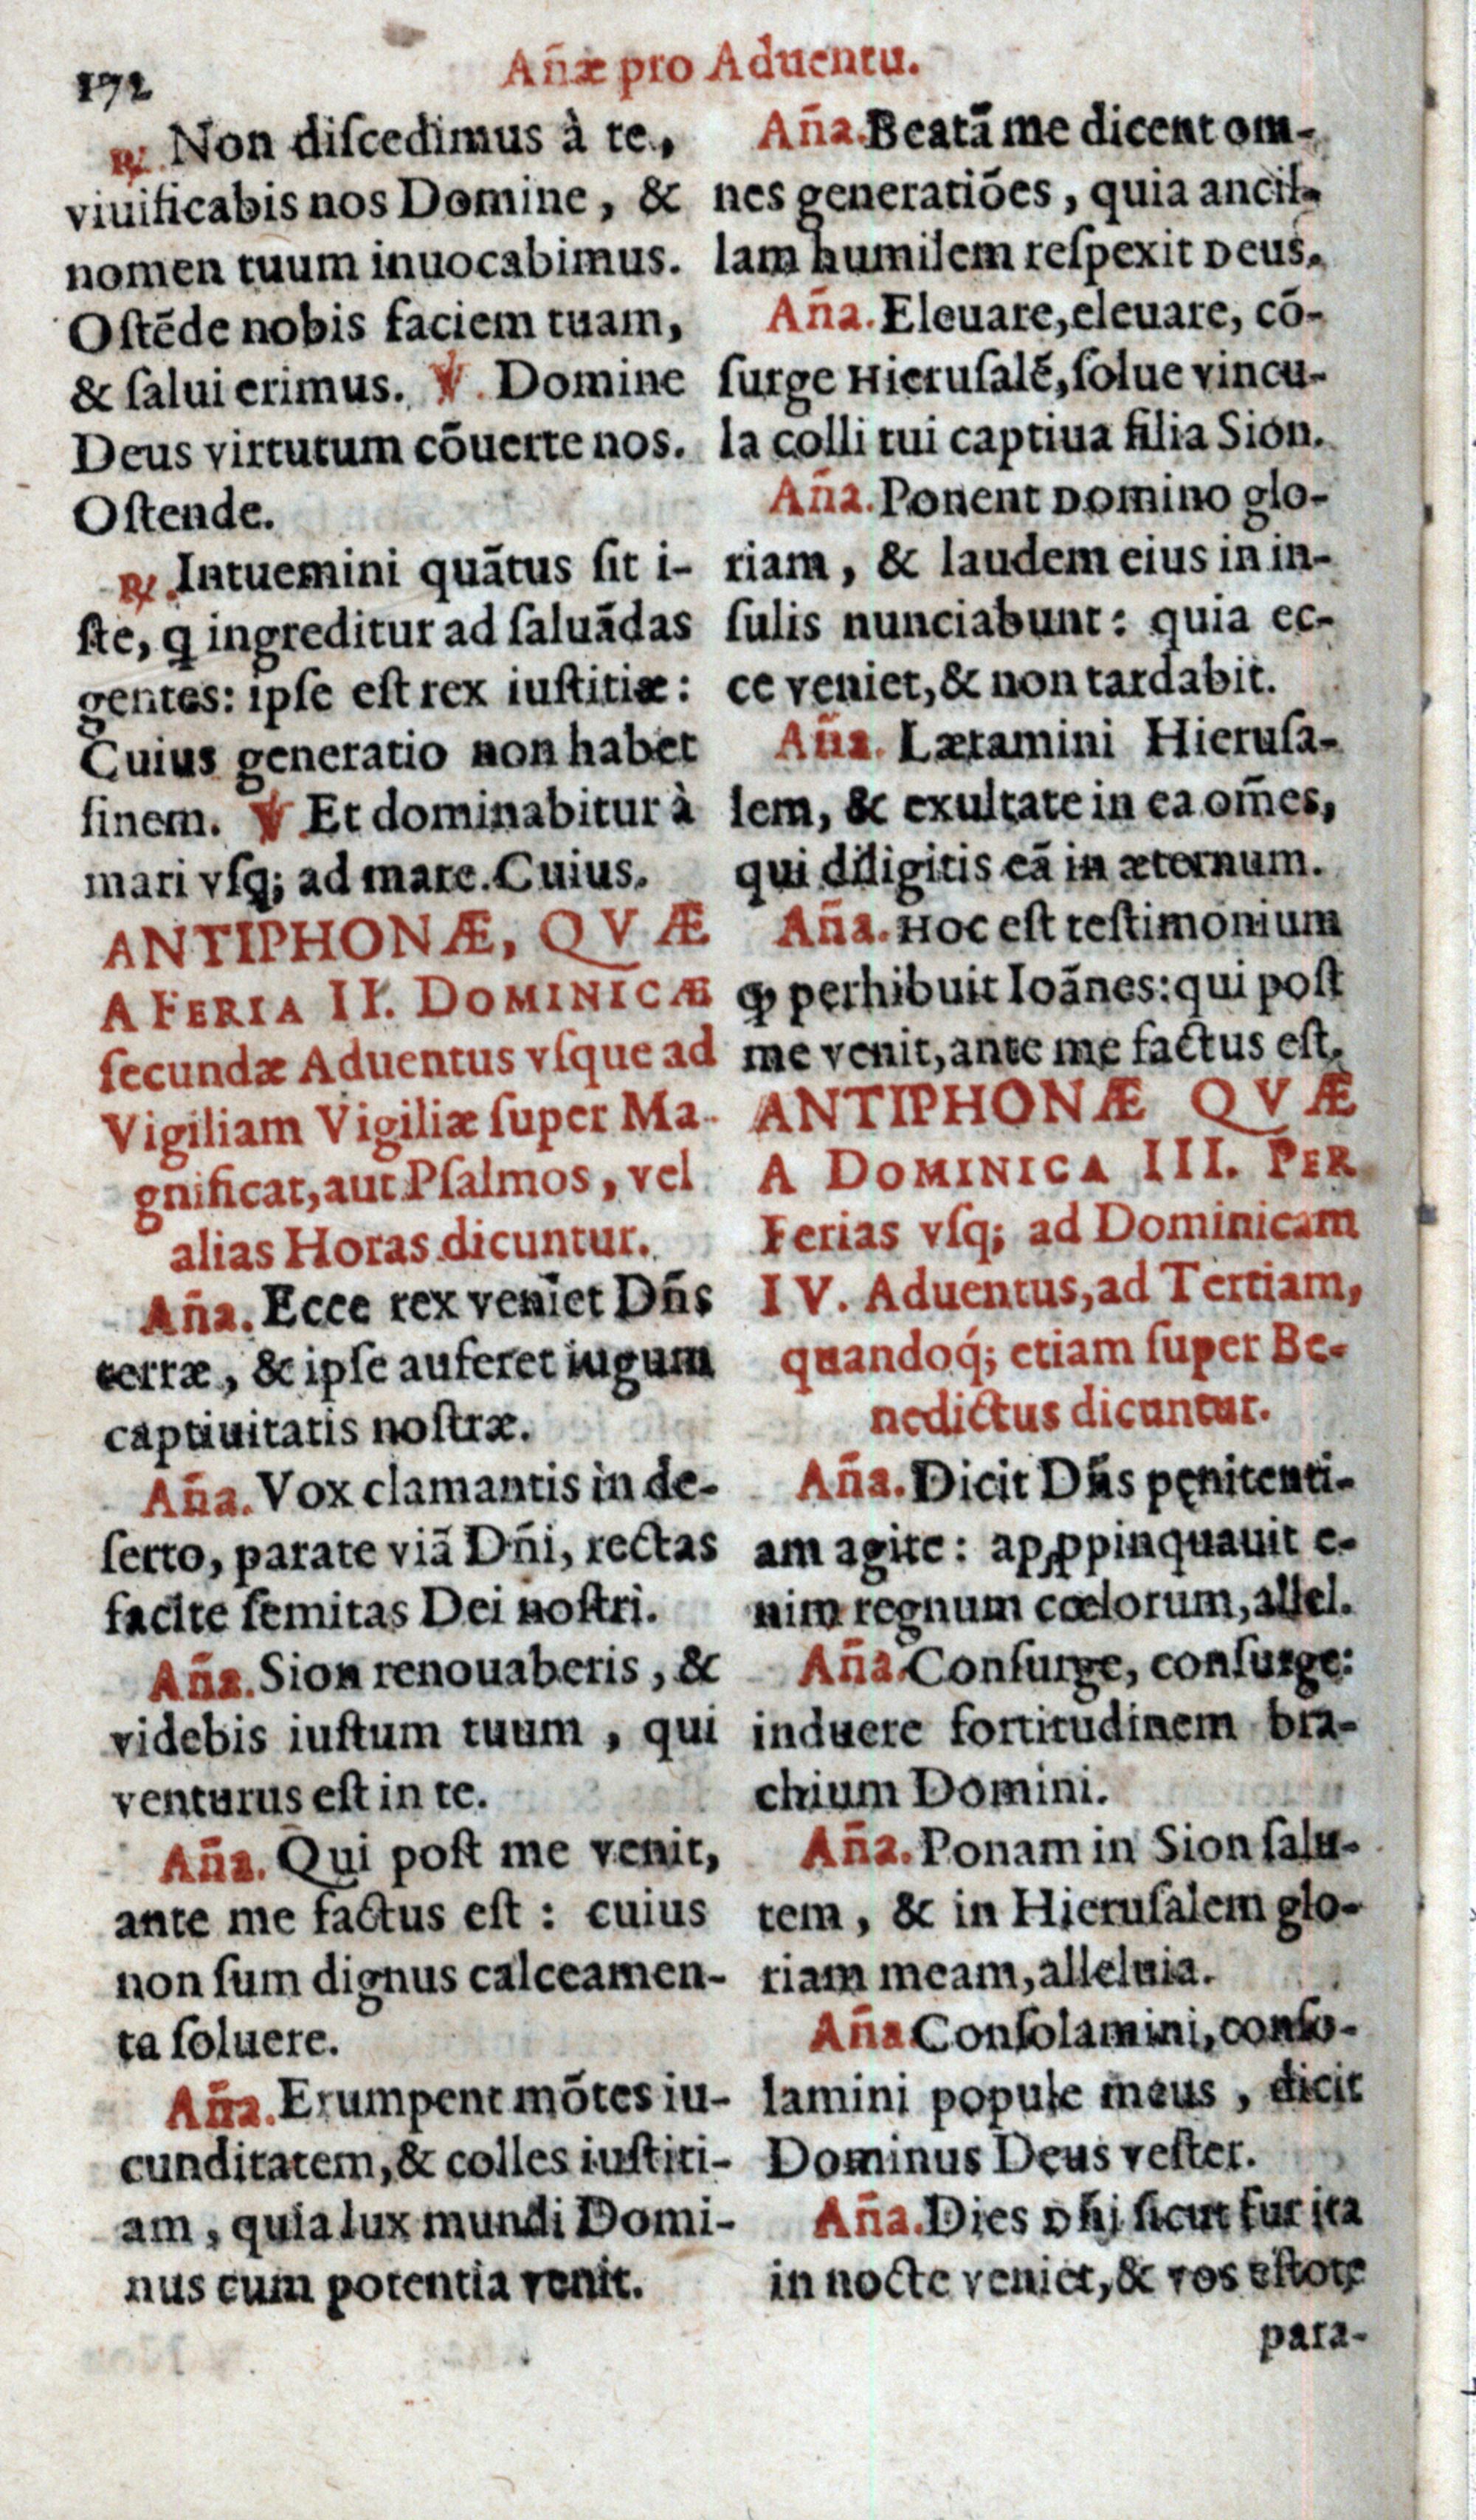 172
Añæ pro Aduentu.
℟. Non diſcedimus à te,
viuificabis nos Domine, &
nomen tuum inuocabimus.
Oſtēde nobis faciem tuam,
& ſalui erimus. ℣. Domine
Deus virtutum cōuerte nos.
Oſtende.
℟. Intuemini quātus ſit i-
ſte, ꝗ ingreditur ad ſaluādas
gentes: ipſe eſt rex iuſtitiæ:
Cuius generatio non habet
finem. ℣. Et dominabitur à
mari vſq; ad mare. Cuius.
ANTIPHONÆ, QVÆ
A FERIA II. DOMINICÆ
ſecundæ Aduentus vſque ad
Vigiliam Vigiliæ ſuper Ma-
gnificat, aut Pſalmos, vel
alias Horas dicuntur.
Aña. Ecce rex veniet Dñs
terræ, & ipſe auferet iugum
captiuitatis noſtræ.
Aña. Vox clamantis in de-
ſerto, parate viā Dñi, rectas
facite ſemitas Dei noſtri.
Aña. Sion renouaberis, &
videbis iuſtum tuum, qui
venturus eſt in te.
Aña. Qui poſt me venit,
ante me factus eſt: cuius
non ſum dignus calceamen-
ta ſoluere.
Aña. Erumpent mōtes iu-
cunditatem, & colles iuſtiti-
am, quia lux mundi Domi-
nus cum potentia venit.
Aña. Beatā me dicent om-
nes generatiōes, quia ancil-
lam humilem reſpexit Deus.
Aña. Eleuare, eleuare, cō-
ſurge Hieruſalē, ſolue vincu-
la colli tui captiua filia Sion.
Aña. Ponent Domino glo-
riam, & laudem eius in in-
ſulis nunciabunt: quia ec-
ce veniet, & non tardabit.
Aña. Lætamini Hieruſa-
lem, & exultate in ea om̄es,
qui diligitis eā in æternum.
Aña. Hoc eſt teſtimonium
ꝙ perhibuit Ioānes: qui poſt
me venit, ante me factus eſt.
ANTIPHONÆ QVÆ
A DOMINICA III. PER
Ferias vſq; ad Dominicam
IV. Aduentus, ad Tertiam,
quandoq́; etiam ſuper Be-
nedictus dicuntur.
Aña. Dicit Dñs pęnitenti-
am agite: apꝓpinquauit e-
nim regnum cœlorum, allel.
Aña. Conſurge, conſurge:
induere fortitudinem bra-
chium Domini.
Aña. Ponam in Sion ſalu-
tem, & in Hieruſalem glo-
riam meam, alleluia.
Aña. Conſolamini, conſo-
lamini popule meus, dicit
Dominus Deus veſter.
Aña. Dies Dñi ſicut fur ita
in nocte veniet, & vos eſtote
para-